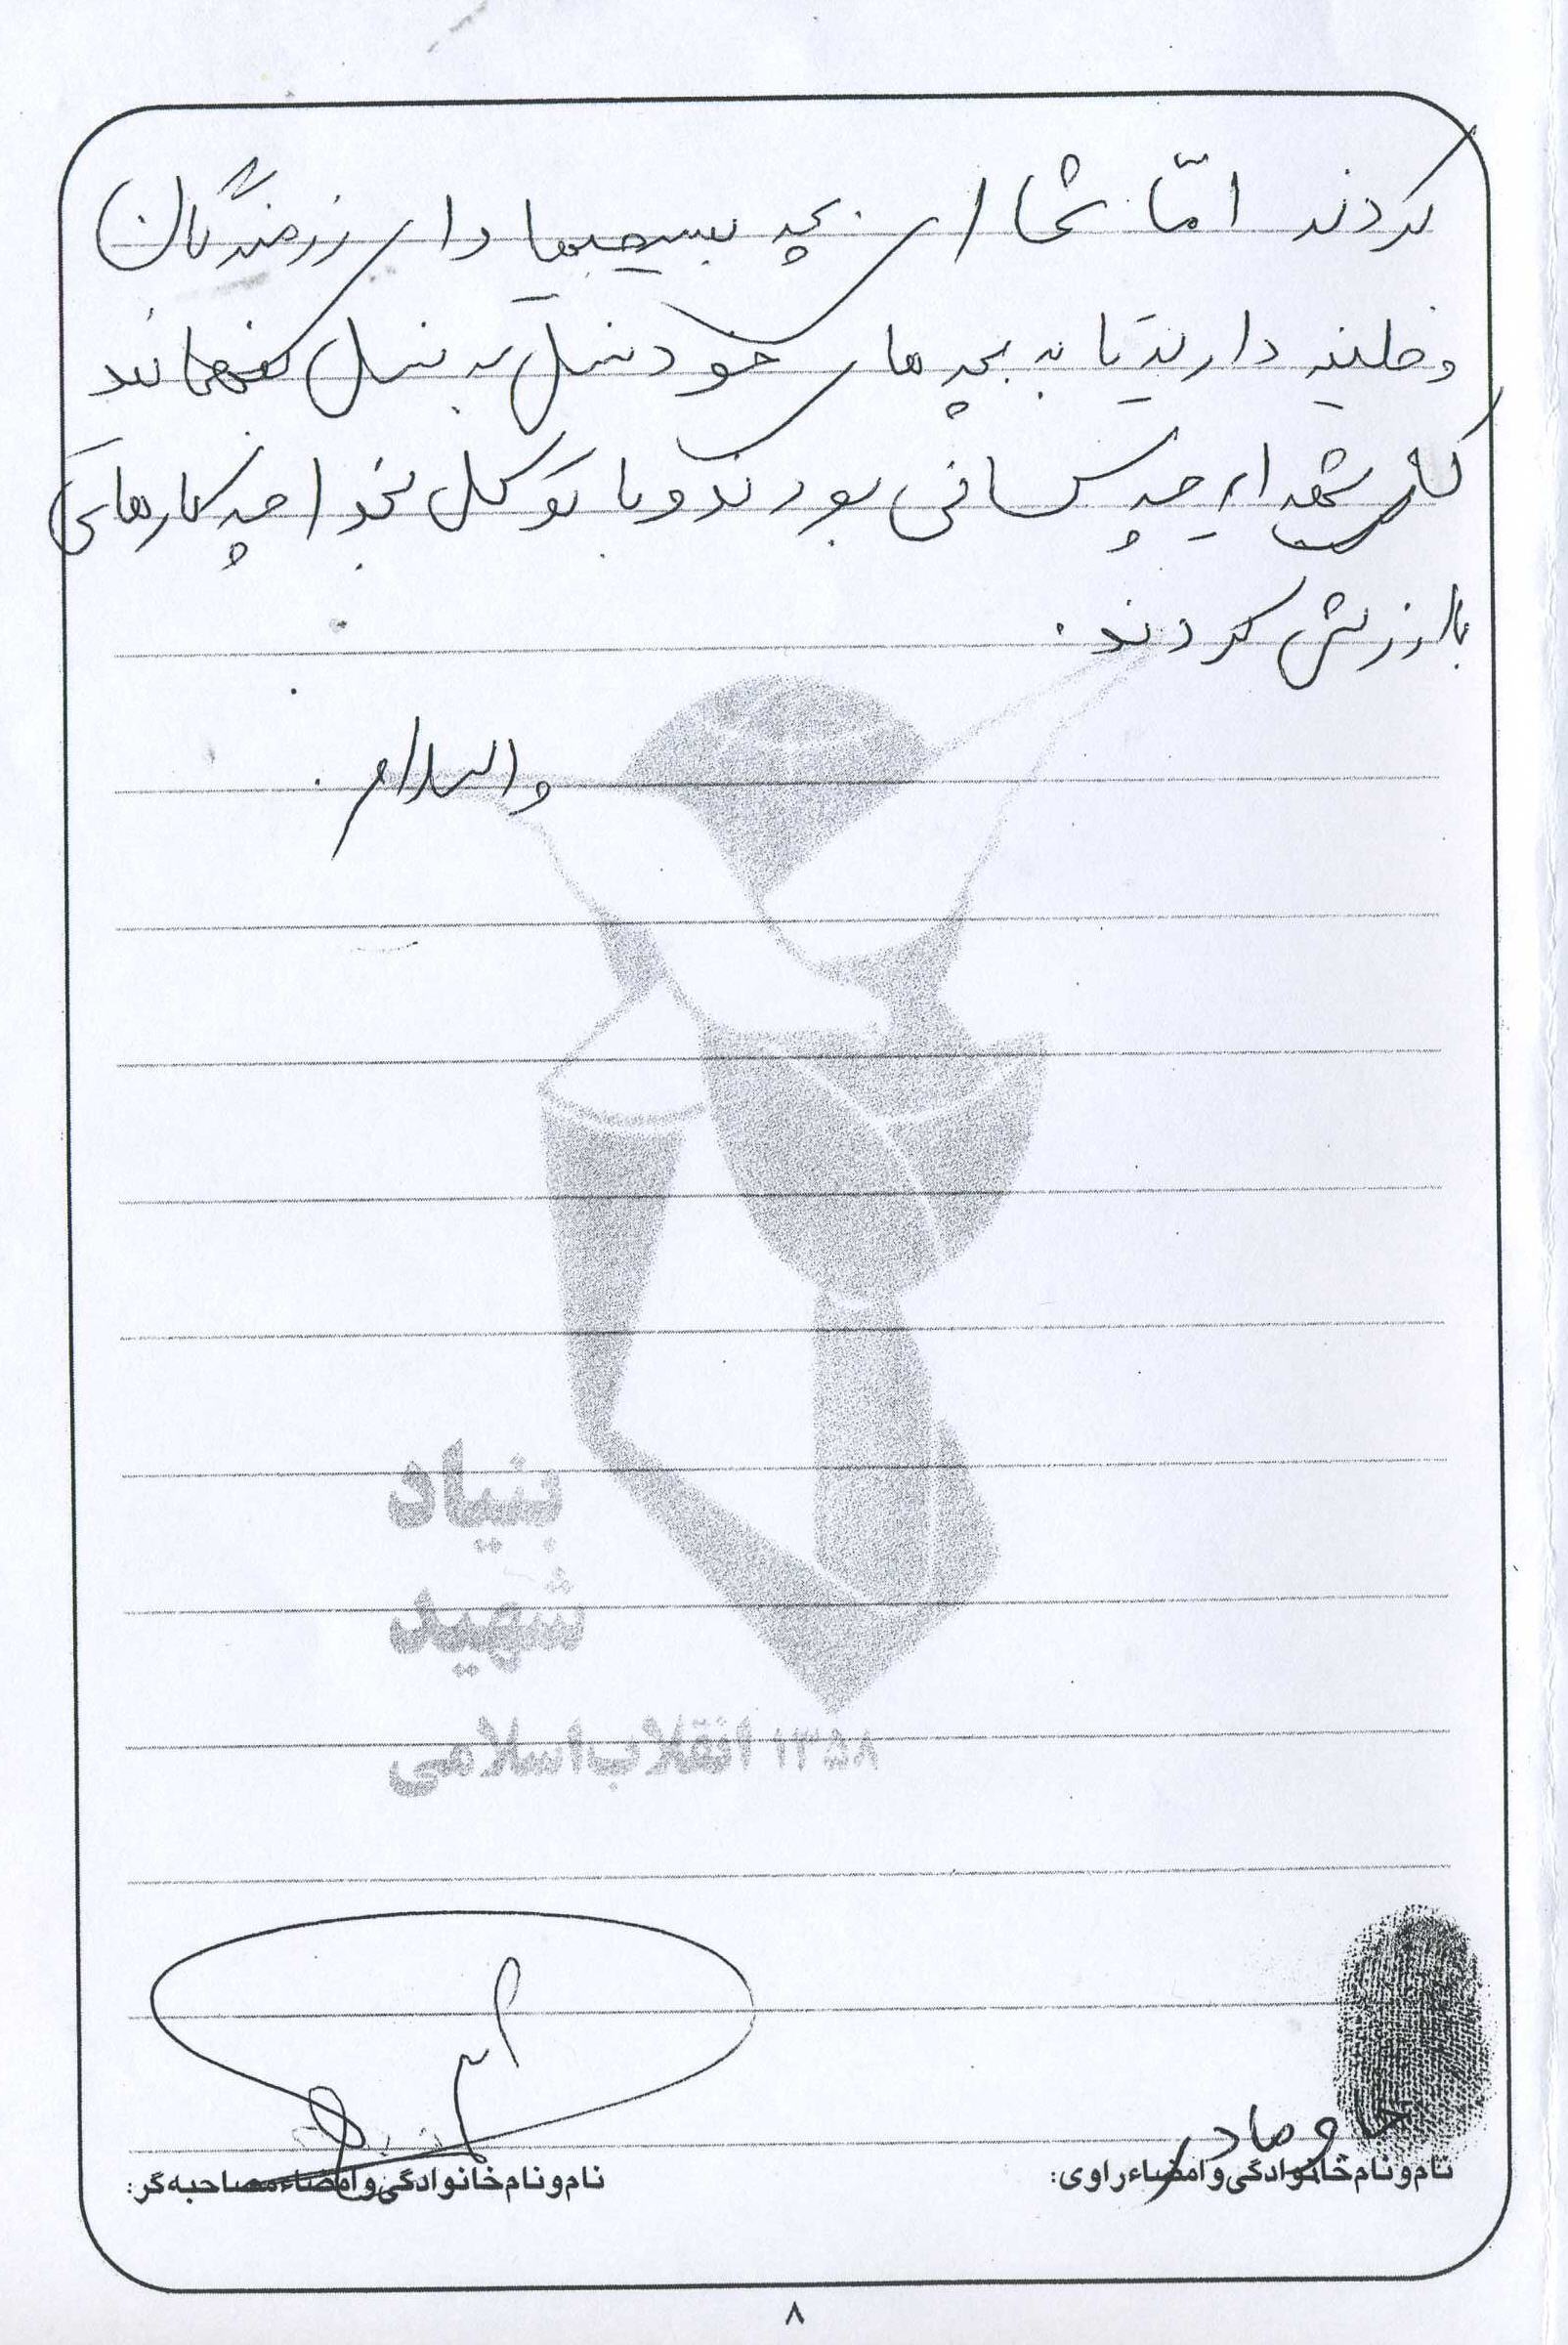 کردند امّا شما ای بچه بسیجیها و ای رزمندگان
وظیفه دارید تا به بچه های خود نسل به نسل بفهمانید
که شهدا چه کسانی بودند و با توکل بخدا چه کارهای
باارزش کردند.
والسلام.
بنیاد
شهید
۱۳۵۸ انقلاب اسلامی
مادر
نام و نام خانوادگی و امضاء راوی:
نام و نام خانوادگی و امضاء مصاحبه گر:
۸